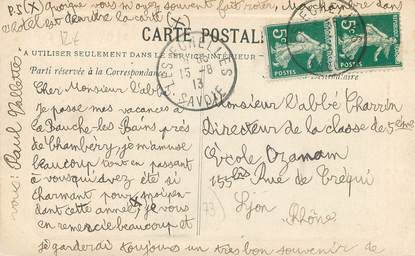 P.S (X) puisque vous m'avez souvent fait rôter, ma chambre dans
l'hôtel est derrière la carte (X)
CARTE POSTALE
A UTILISER SEULEMENT DANS LE SERVICE INTÉRIEUR
Parti réservée à la Correspondance
15 -8
13
SAVOIE
5c
POSTES
5c
POSTES
Cher Monsieur l'abbé
Je passe mes vacances à
La Bauche-les-Bains près
de Chambéry, je m'amuse
beaucoup tout en passant
à vous qui avez été si
charmant pour moi pen-
dant cette année, je vous
en remercie beaucoup et
je garderai toujours un très bon souvenir de
vous: Paul Vallette
Monsieur l'abbé Charrin
Directeur de la classe de 5ème
École Ozanam
155bis Rue de Créqui
Lyon
Rhône